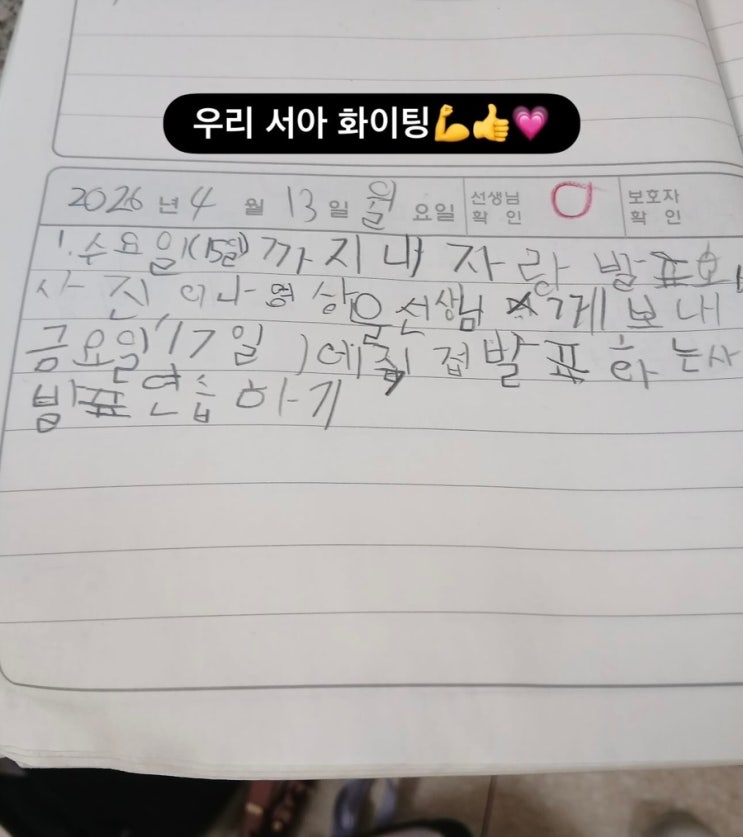 우리 서아 화이팅💪👍💗
2026 년 4 월 13 일 월 요일 선생님 확 인 보호자 확 인
1. 수요일(15일)까지 내 자랑 발표
사진이나 영상을 선생님께 보내
금요일(17일)에 직접 발표하는 사
발표 연습 하기